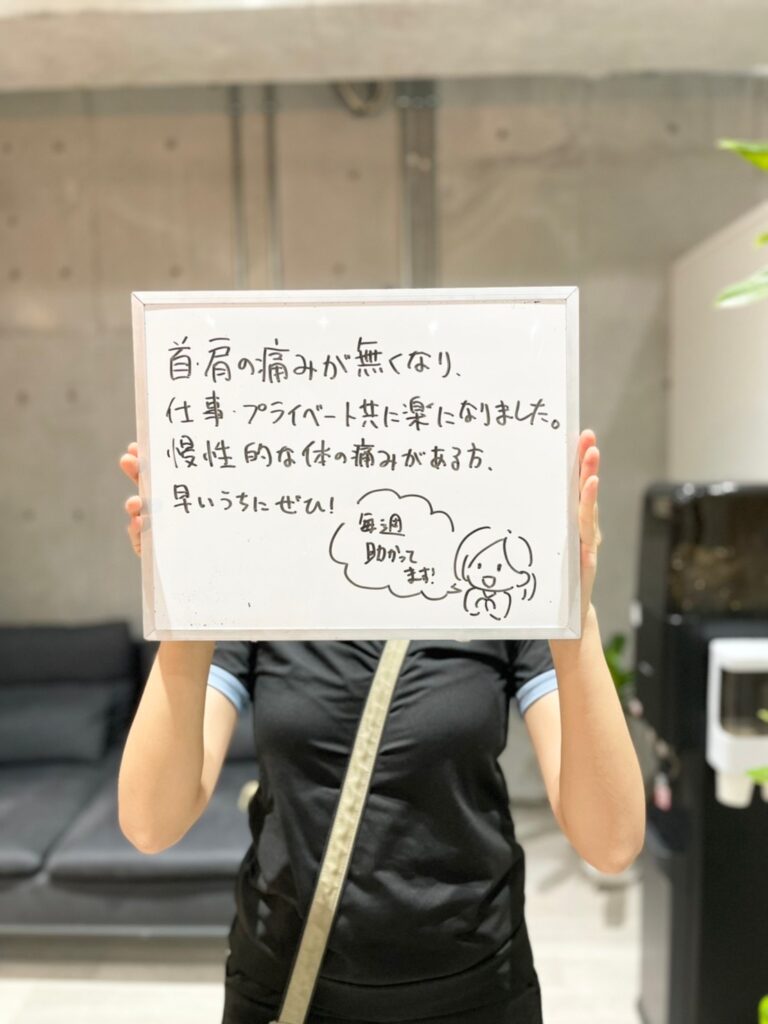 首・肩の痛みが無くなり、
仕事・プライベート共に楽になりました。
慢性的な体の痛みがある方、
早いうちにぜひ!
毎週
助かって
ます!